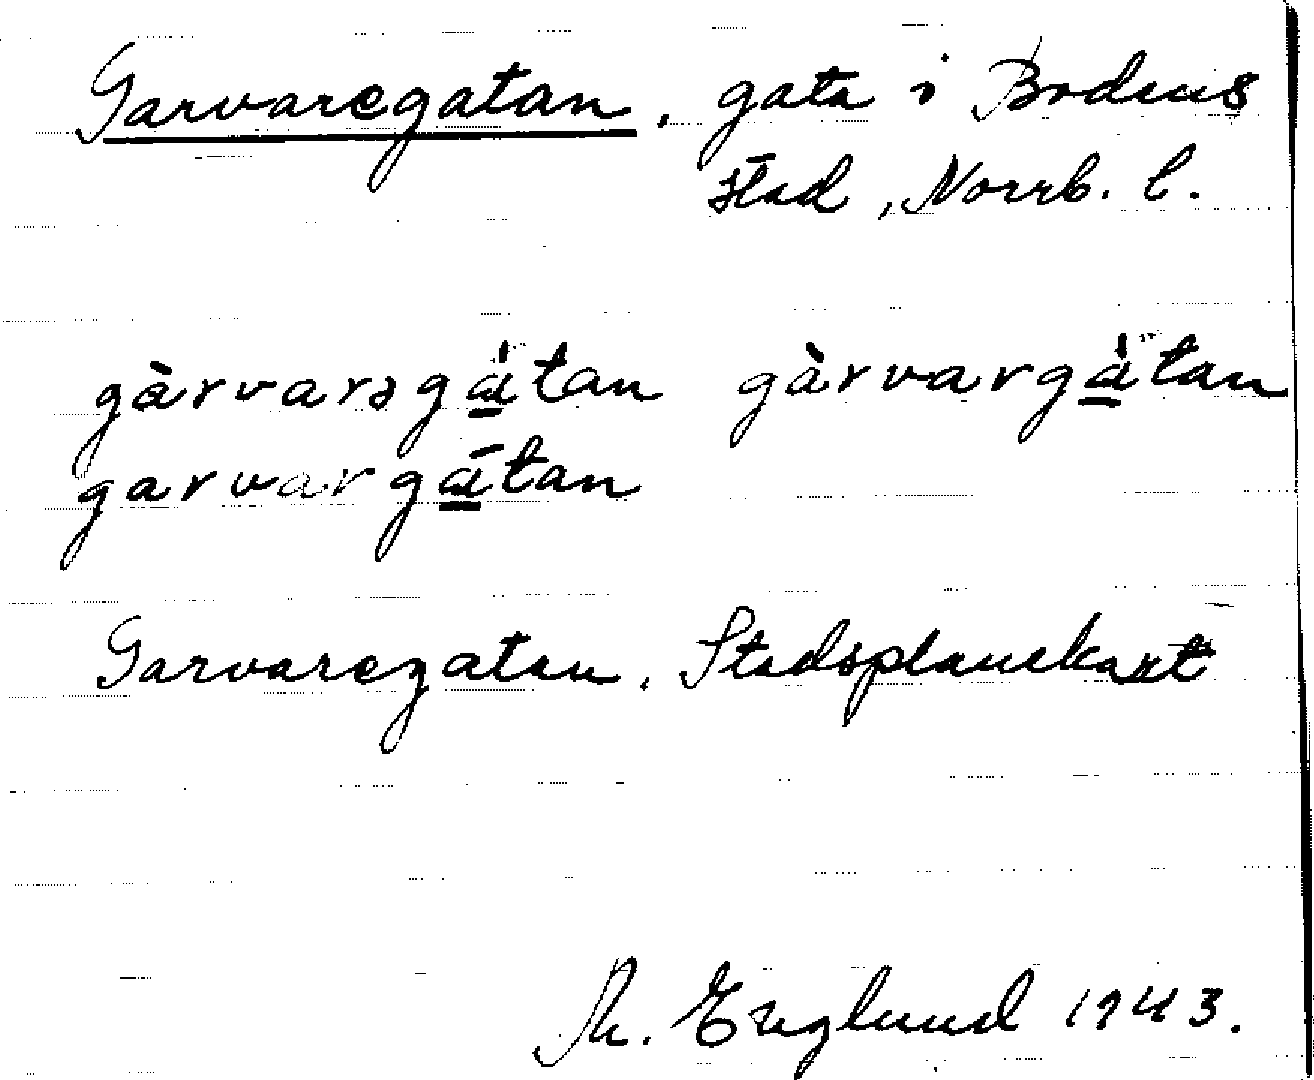 Garvaregatan, gata i Bodens
stad, Norrb. l.
gàrvarəgà̱tan gàrvargà̱tan
garvargá̱tan
Garvaregatan. Stadsplanekart
M. Englund 1943.